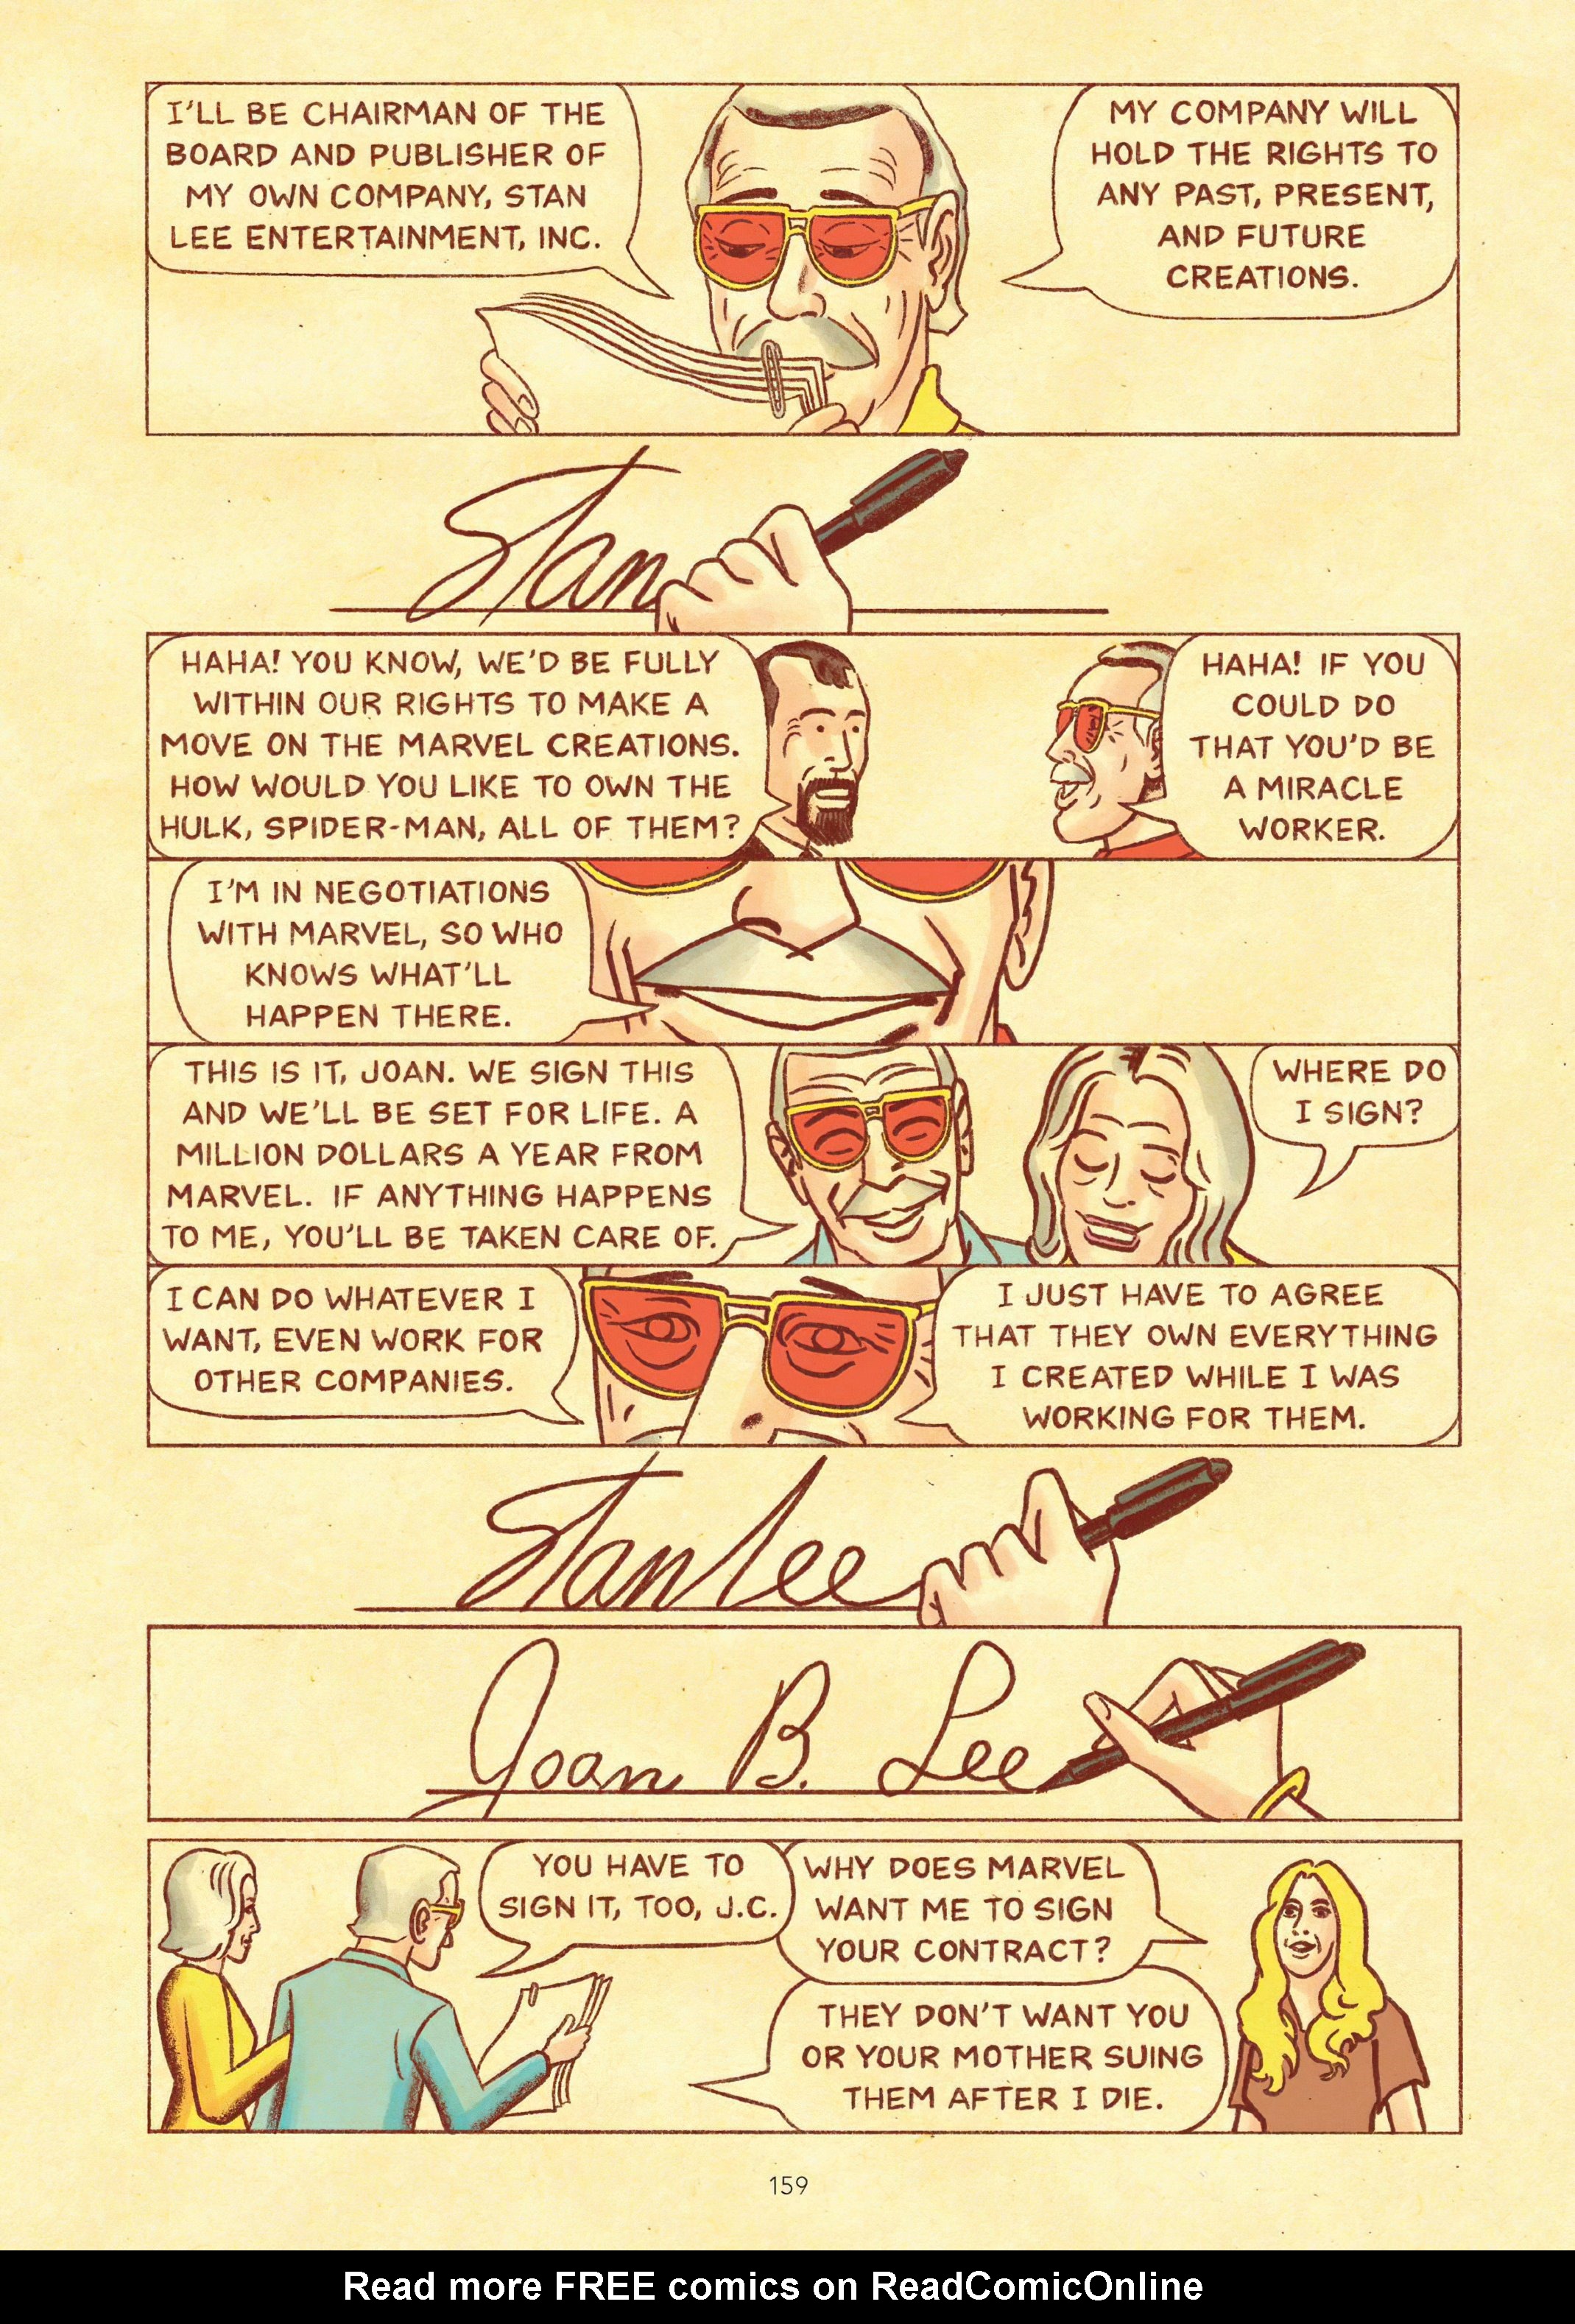 I'LL BE CHAIRMAN OF THE
BOARD AND PUBLISHER OF
MY OWN COMPANY, STAN
LEE ENTERTAINMENT, INC.
MY COMPANY WILL
HOLD THE RIGHTS TO
ANY PAST, PRESENT,
AND FUTURE
CREATIONS.
Stan
HAHA! YOU KNOW, WE'D BE FULLY
WITHIN OUR RIGHTS TO MAKE A
MOVE ON THE MARVEL CREATIONS.
HOW WOULD YOU LIKE TO OWN THE
HULK, SPIDER-MAN, ALL OF THEM?
HAHA! IF YOU
COULD DO
THAT YOU'D BE
A MIRACLE
WORKER.
I'M IN NEGOTIATIONS
WITH MARVEL, SO WHO
KNOWS WHAT'LL
HAPPEN THERE.
THIS IS IT, JOAN. WE SIGN THIS
AND WE'LL BE SET FOR LIFE. A
MILLION DOLLARS A YEAR FROM
MARVEL. IF ANYTHING HAPPENS
TO ME, YOU'LL BE TAKEN CARE OF.
WHERE DO
I SIGN?
I CAN DO WHATEVER I
WANT, EVEN WORK FOR
OTHER COMPANIES.
I JUST HAVE TO AGREE
THAT THEY OWN EVERYTHING
I CREATED WHILE I WAS
WORKING FOR THEM.
Stan Lee
Joan B. Lee
YOU HAVE TO
SIGN IT, TOO, J.C.
WHY DOES MARVEL
WANT ME TO SIGN
YOUR CONTRACT?
THEY DON'T WANT YOU
OR YOUR MOTHER SUING
THEM AFTER I DIE.
159
Read more FREE comics on ReadComicOnline